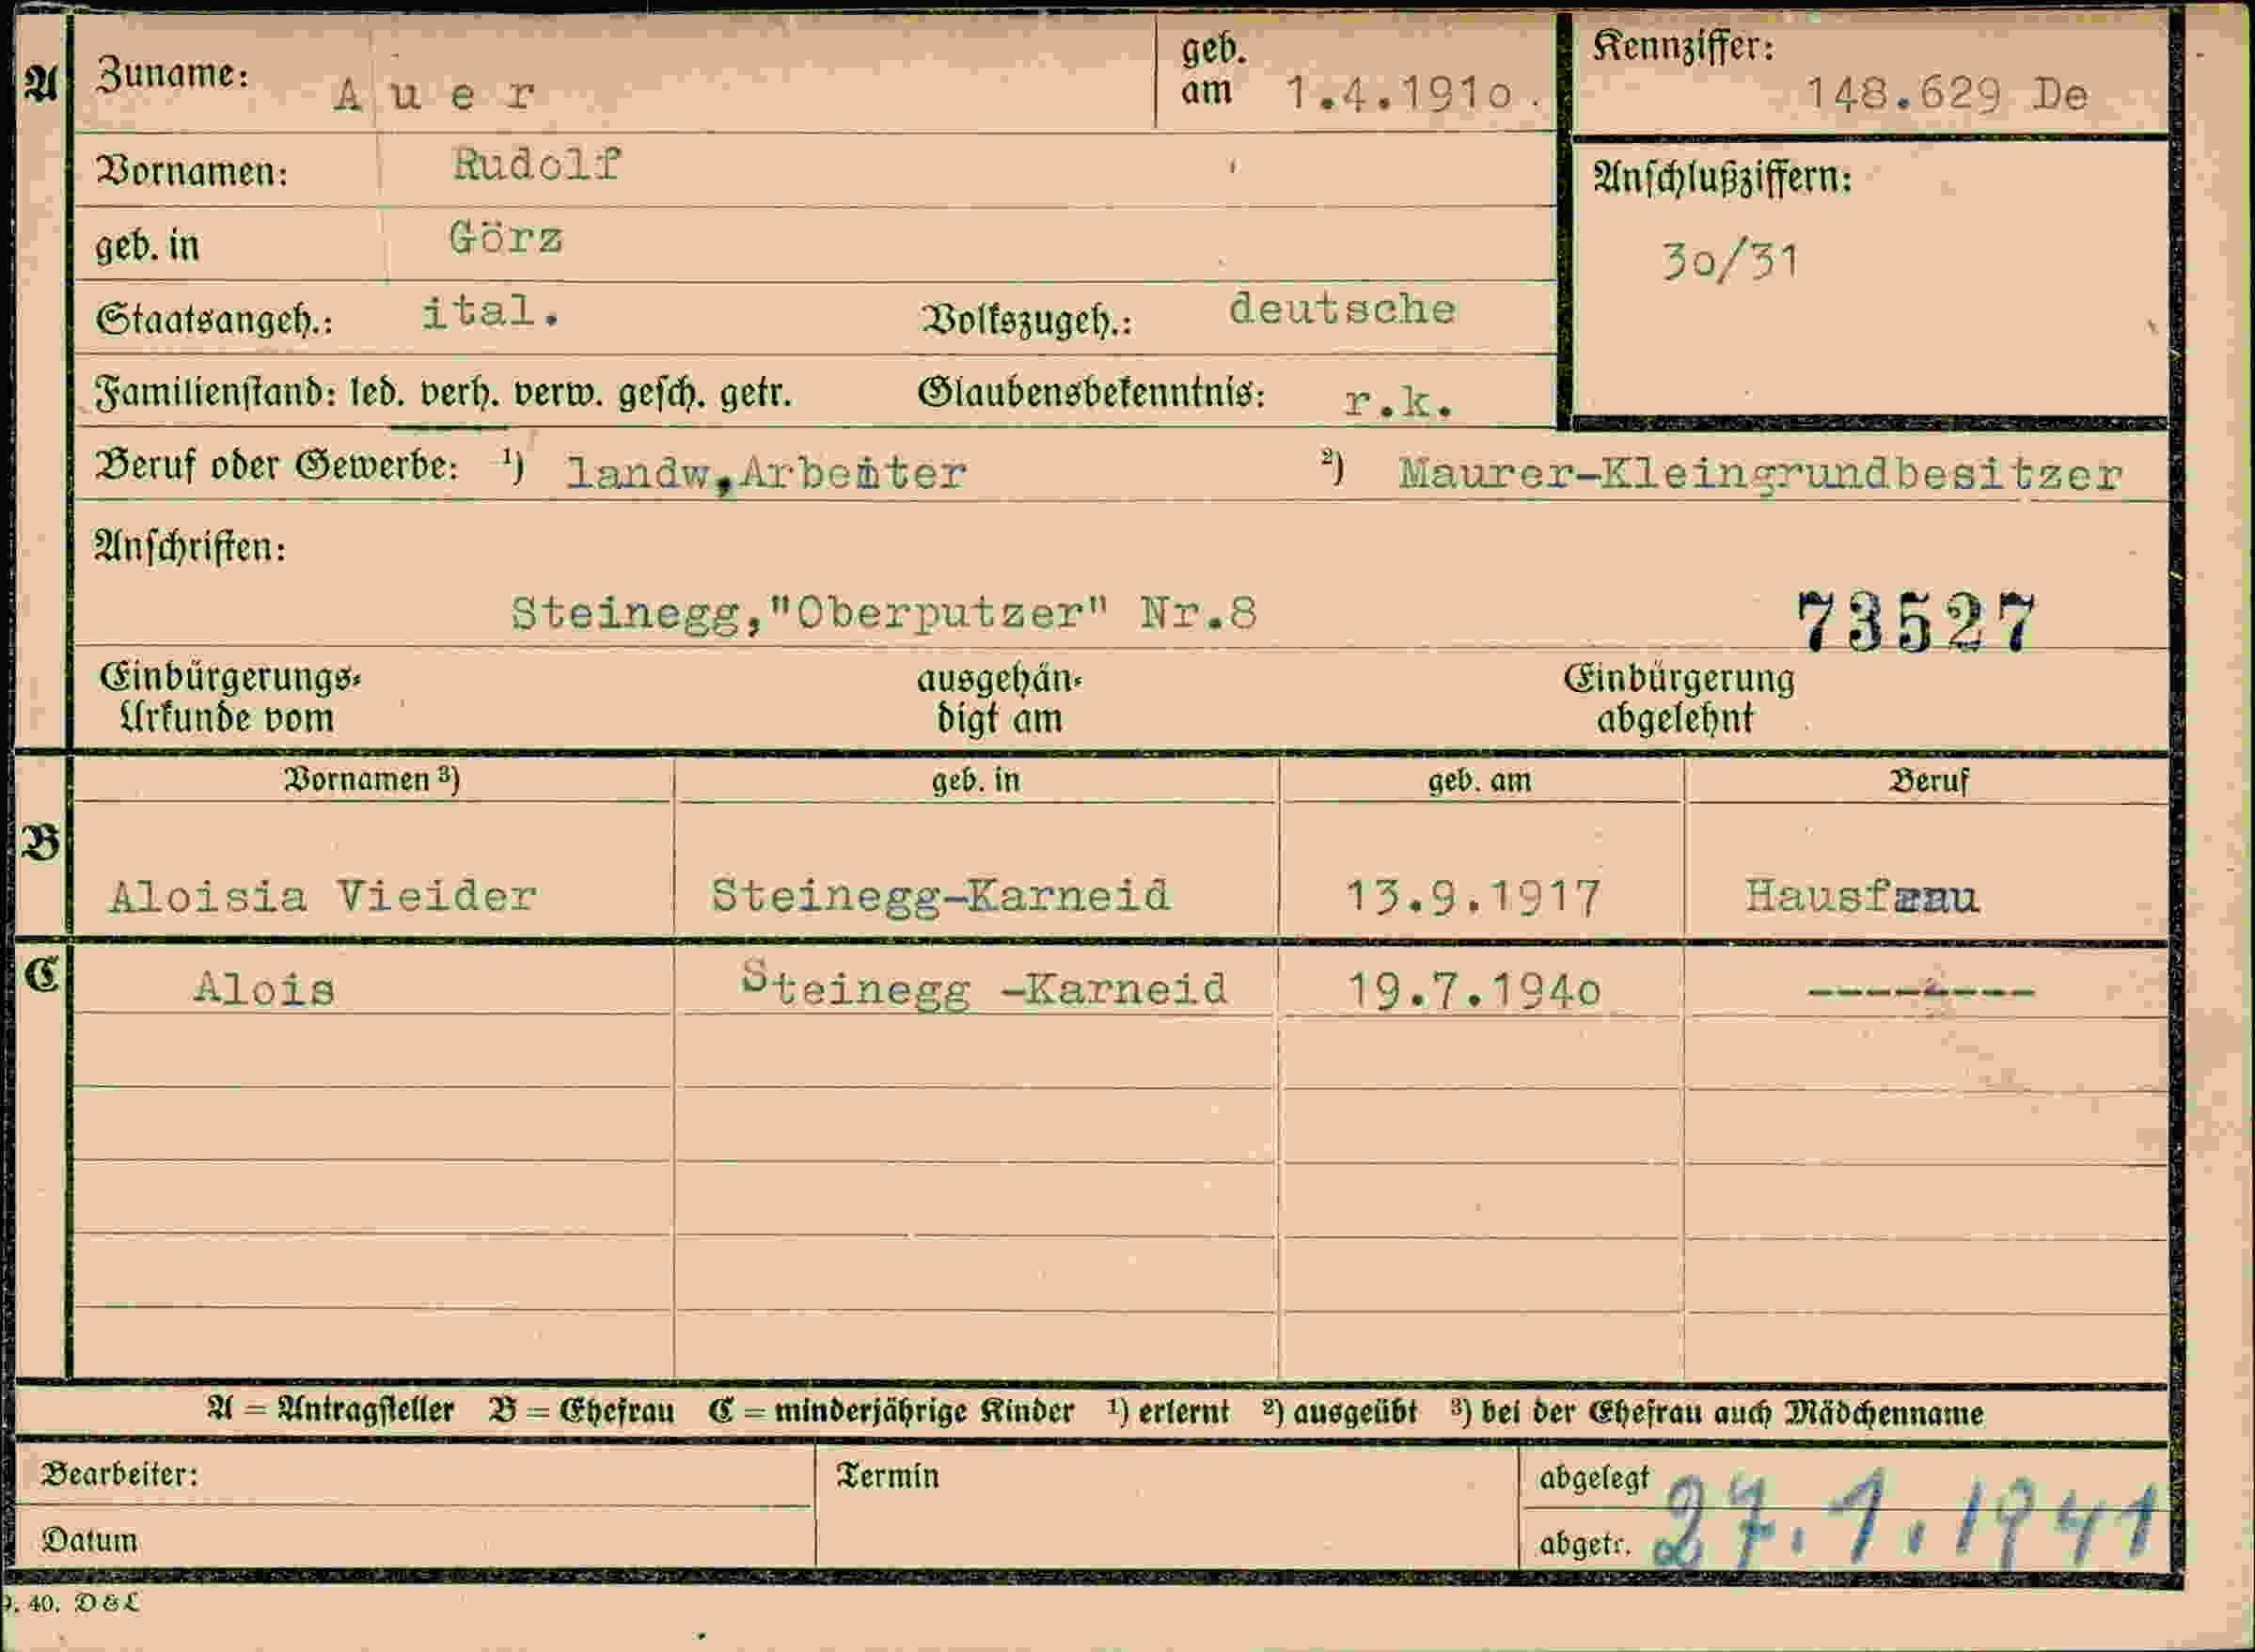 A Zuname: Auer geb. am 1.4.1910. Kennziffer: 148.629 De
Vornamen: Rudolf Anschlußziffern:
geb. in Görz 30/31
Staatsangeh.: ital. Volkszugeh.: deutsche
Familienstand: led. verh. verw. gesch. getr. Glaubensbekenntnis: r.k.
Beruf oder Gewerbe: ¹) landw.Arbeiter ²) Maurer-Kleingrundbesitzer
Anschriften:
Steinegg,"Oberputzer" Nr.8 73527
Einbürgerungs- ausgehän- Einbürgerung
Urkunde vom digt am abgelehnt
Vornamen ³) geb. in geb. am Beruf
B
Aloisia Vieider Steinegg-Karneid 13.9.1917 Hausfrau
C Alois Steinegg -Karneid 19.7.1940 ---------
A = Antragsteller B = Ehefrau C = minderjährige Kinder ¹) erlernt ²) ausgeübt ³) bei der Ehefrau auch Mädchenname
Bearbeiter: Termin abgelegt
Datum abgetr. 27.1.1941
9. 40. D&L